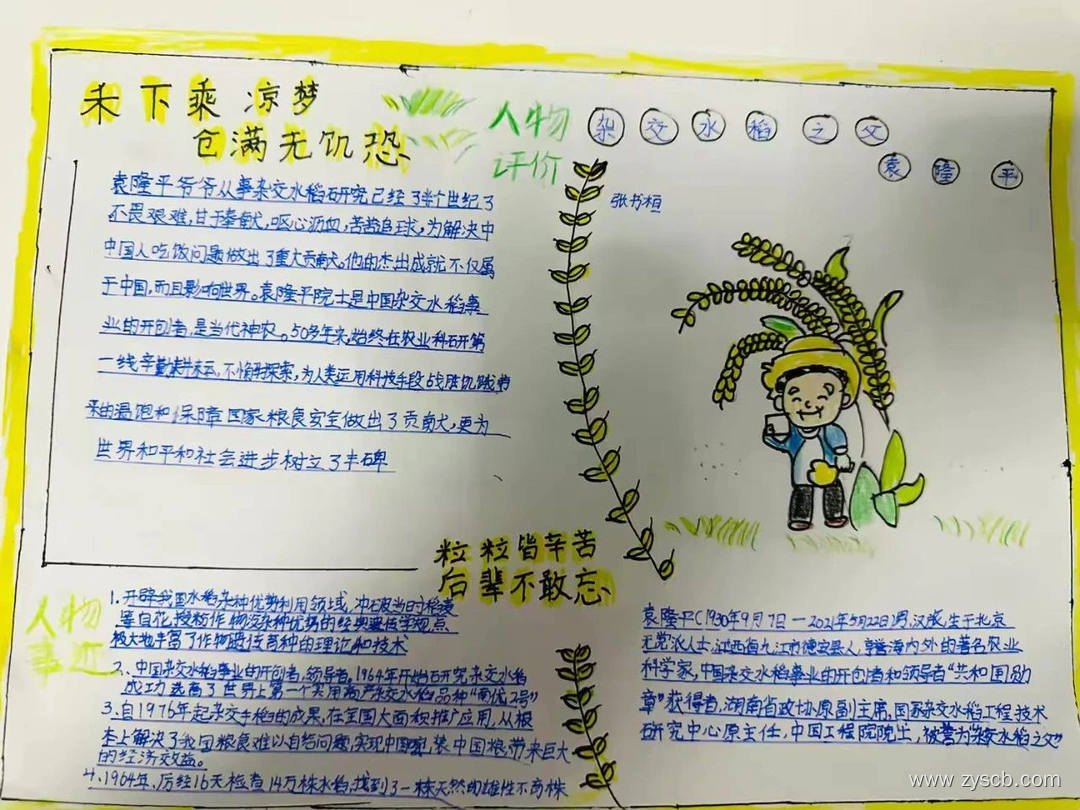 禾下乘凉梦
仓满无饥恐
人物
评价
杂交水稻之父
袁隆平
张书桓
袁隆平爷爷从事杂交水稻研究已经了半个世纪了
不畏艰难,甘于奉献,呕心沥血,苦苦追球,为解决中
中国人吃饭问题做出了重大贡献。他的杰出成就不仅属
于中国,而且影响世界。袁隆平院士是中国杂交水稻事
业的开创者,是当代神农。50多年来,始终在农业科研第
一线辛勤耕耘,不懈探索,为人类运用科技手段战胜饥饿
来的温饱和保障国家粮食安全做出了贡献,更为
世界和平和社会进步树立了丰碑
粒粒皆辛苦
后辈不敢忘
人物
事迹
1.开辟我国水稻杂种优势利用领域,冲破当时稻麦
等自花授粉作物没杂种优势的经典遗传学观点
极大地丰富了作物遗传育种的理论和技术
2、中国杂交水稻事业的开创者,领导者,1964年开始研究杂交水稻
成功选育了世界上第一个实用高产杂交水稻品种“南优2号”
3、自1976年起杂交水稻的成果,在全国大面积推广应用,从根
本上解决了我国粮食难以自给问题,实现中国家,装中国粮,带来巨大
的经济效益。
4、1964年,历经16天检查14万株水稻,找到了一株天然的雄性不育株
袁隆平(1930年9月7日一2021年5月22日)男,汉族,生于北京
无党派人士,江西省九江市德安县人,享誉海内外的著名农业
科学家,中国杂交水稻事业的开创者和领导者“共和国勋
章”获得者,湖南省政协原副主席,国家杂交水稻工程技术
研究中心原主任,中国工程院院士,被誉为“杂交水稻之父”
www.zyscb.com